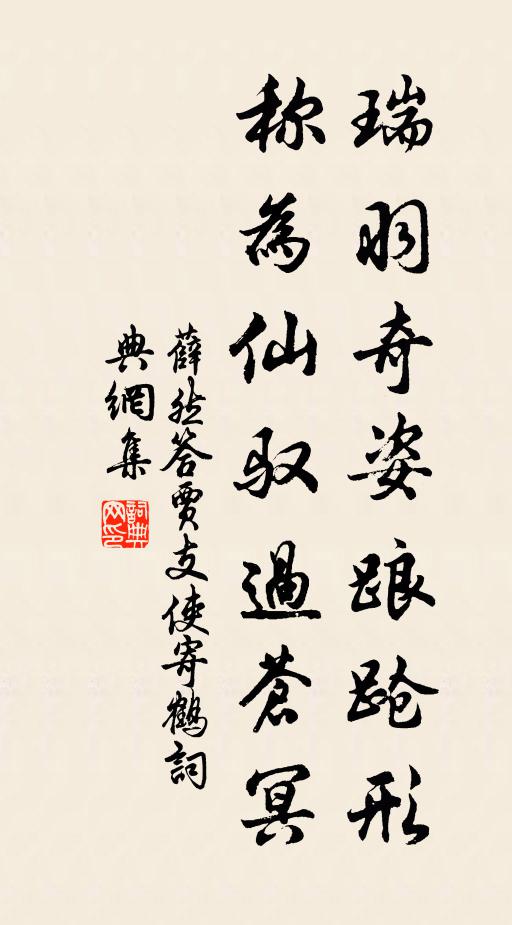 瑞羽奇姿踉跄形
称為仙驭過蒼冥
薛能答賈支使寄鶴詞
典網集
詞典网印